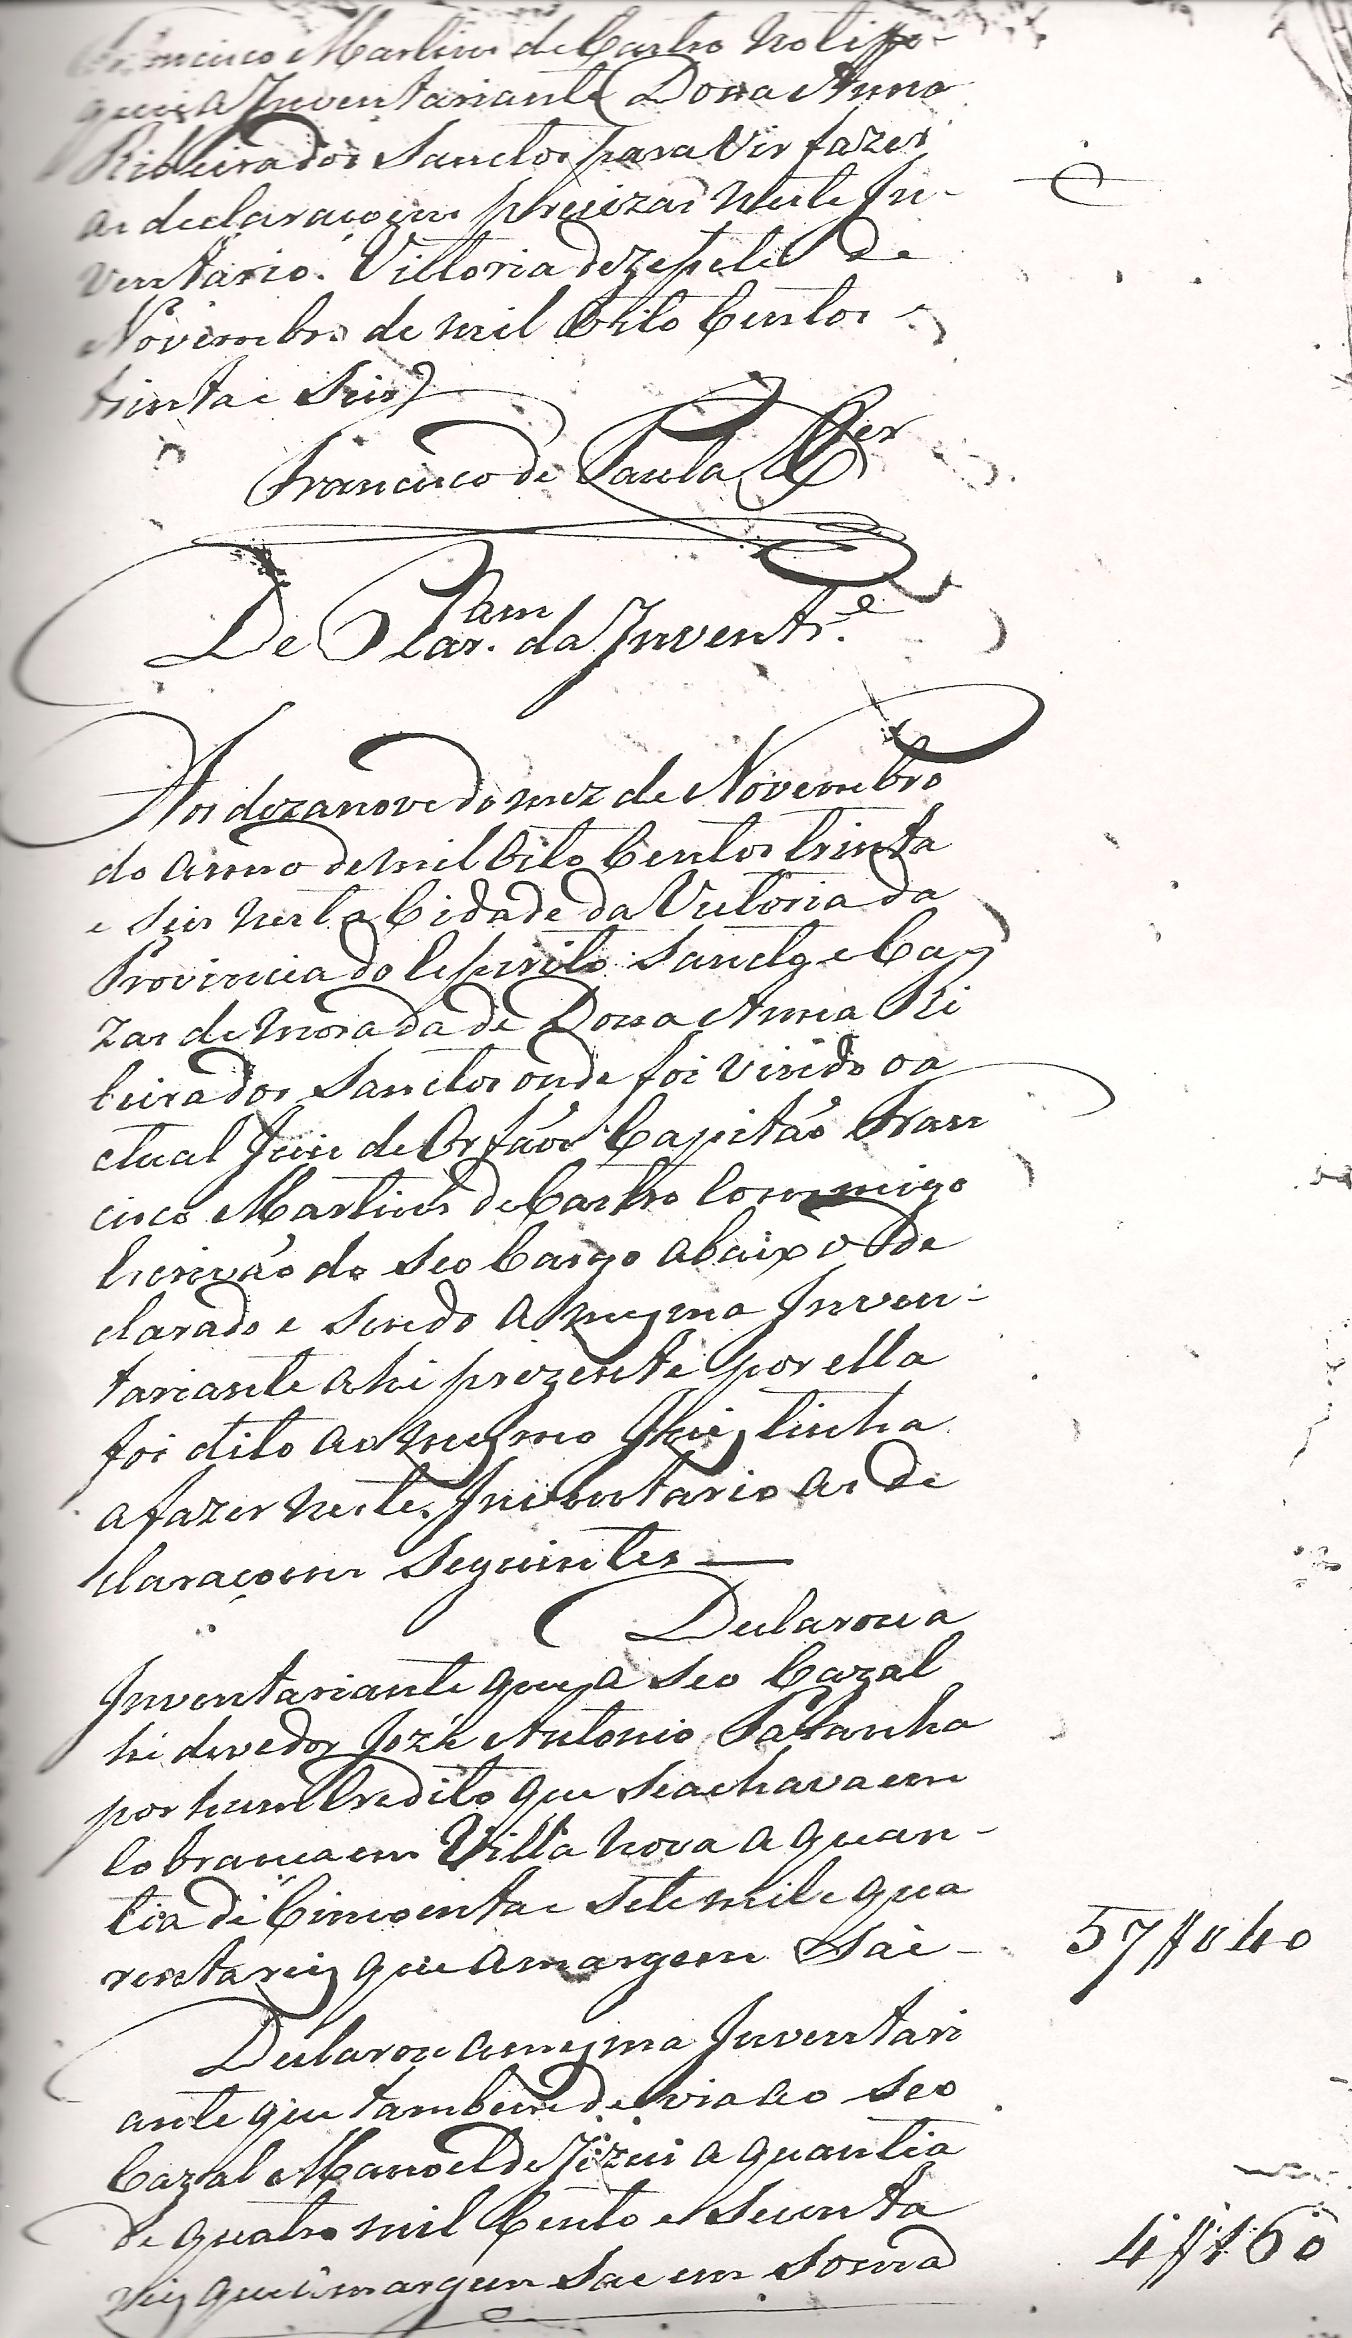 Francisco Martins de Castro notifi-
quei a Inventariante Dona Anna
Ribeira dos Sanctos para vir fazer
as declaraçoens precizas neste In-
ventario. Victoria dezesete de
Novembro de mil Oito Centos e
trinta e seis
Francisco de Paula X.er
De Clar.am da Invent.e
Aos dezanove do mez de Novembro
do anno de mil Oito Centos trinta
e seis nesta Cidade da Victoria da
Provincia do Espirito Sancto e Ca
zas de morada de Dona Anna Ri
beira dos Sanctos onde foi vindo o a
ctual Juiz de Orfãos Capitão Fran
cisco Martins de Castro Commigo
Escrivão do seo Cargo abaixo de
clarado e sendo a mesma Inven-
tariante ahi prezente por ella
foi dito ao mesmo Juiz tinha
a fazer neste Inventario as de
claraçoens seguintes
Declarou a
Inventariante que a seo Cazal
hé devedor Jozé Antonio Saldanha
por hum Credito que se achava em
Cobrança em Villa Nova a quan-
tia de Cincoenta e sete mil e qua
renta reis que a margem Sai-
57$040
Declarou a mesma Inventari
ante que tambem devia ao seo
Cazal Manoel de Jezus a quantia
de quatro mil Cento e secenta
reis que á margem sae em soma
4$160